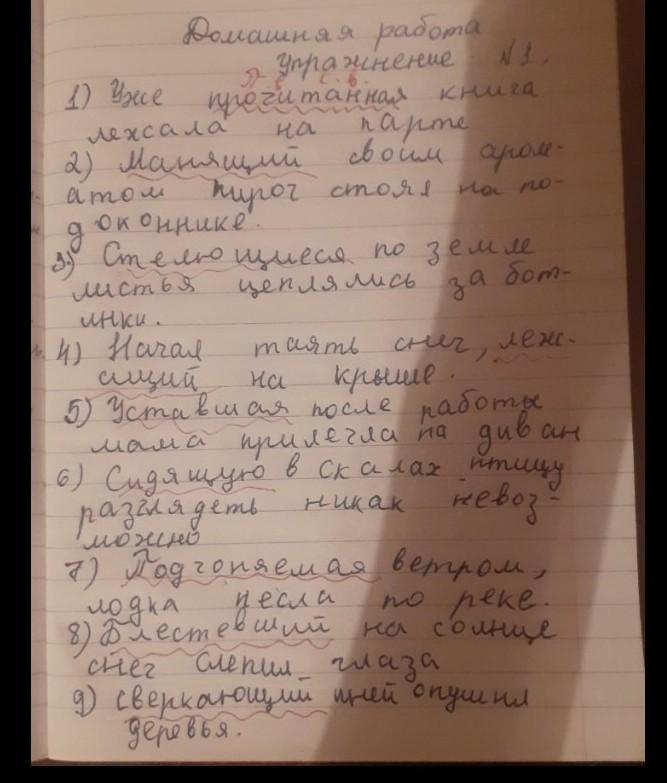 Домашняя работа
Упражнение №1.
1) Уже прочитанная книга
лежала на парте
2) Манящий своим аром-
атом пирог стоял на по-
доконнике.
3) Стелющиеся по земле
листья цеплялись за бот-
инки.
4) Начал таять снег, леж-
ащий на крыше.
5) Уставшая после работы
мама прилегла на диван
6) Сидящую в скалах птицу
разглядеть никак невоз-
можно
7) Подгоняемая ветром,
лодка несла по реке.
8) Блестевший на солнце
снег слепил глаза
9) сверкающий иней опушил
деревья.